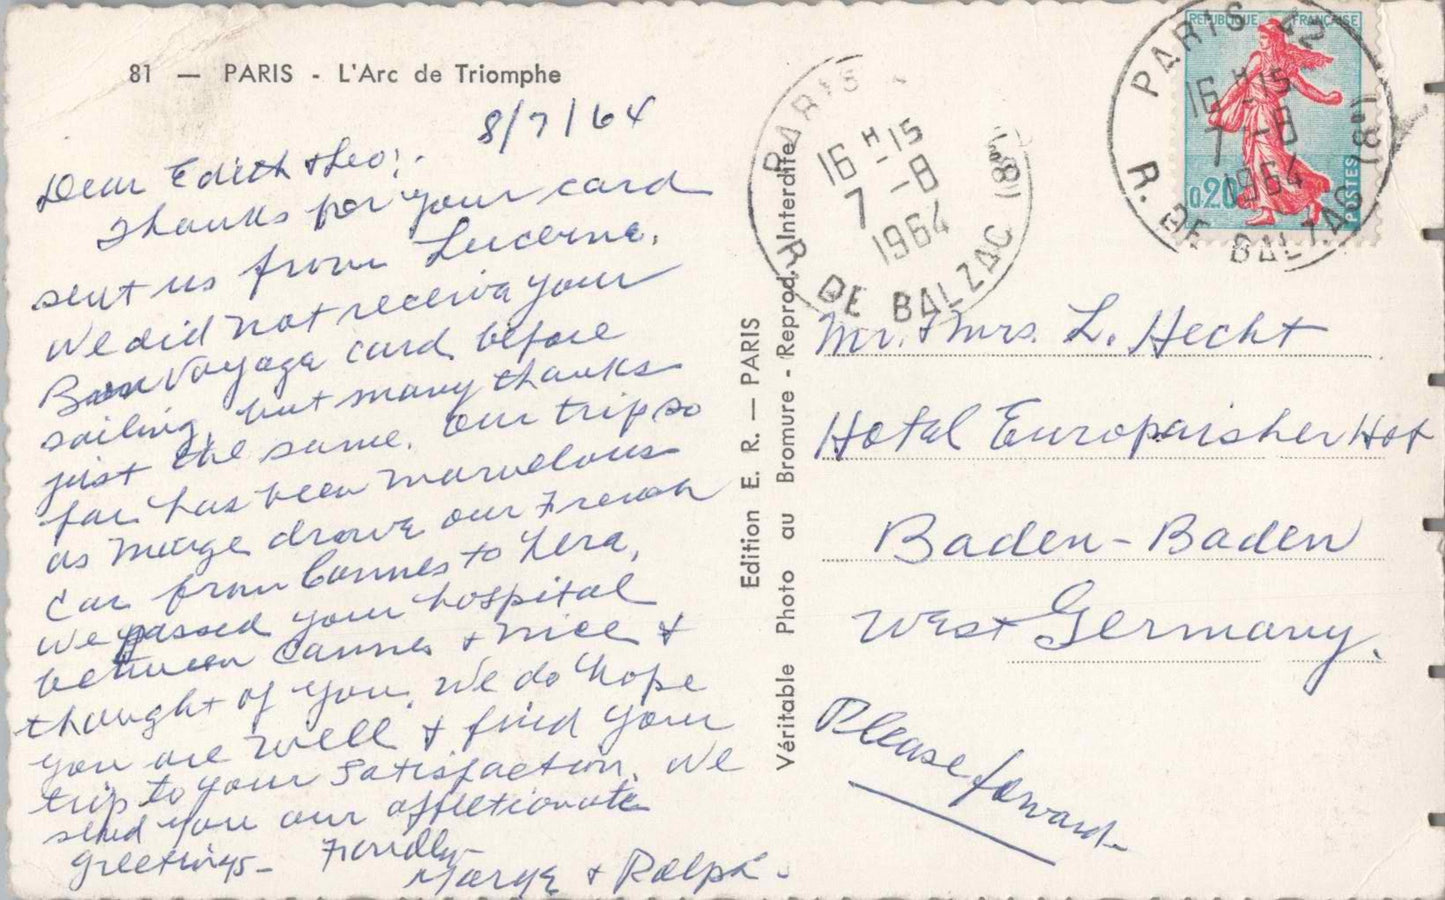 81 — PARIS - L'Arc de Triomphe
8/7/64
Dear Edith & Leo:.
Thanks for your card
sent us from Lucerne.
We did not receive your
Bon Voyage card before
sailing, but many thanks
just the same. Our trip so
far has been marvelous
as Marge drove our French
car from Cannes to here.
We passed your hospital
between Cannes & Nice &
thought of you. We do hope
you are well & find your
trip to your satisfaction. We
send you our affectionate
greetings— Fondly—
Marge & Ralph.
Edition E. R. — PARIS
Véritable Photo au Bromure - Reprod. Interdite
PARIS
16 H -15
7 -8
1964
R. DE BALZAC (8E)
REPUBLIQUE FRANÇAISE
0,20
POSTES
PARIS 22
16 H -15
7 -8
1964
R. DE BALZAC (8E)
Mr. & Mrs. L. Hecht
Hotel Europaisher Hof
Baden-Baden
West Germany.
Please forward—